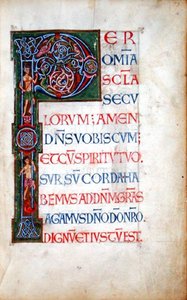 PER
OMIA
SCLA
SECU
LORUM; AMEN
DN̄S VOBISCUM;
ET CŪ SPIRITV TVO
SURSŪ CORDA HA
BEMUS AD DN̄M GRĀS
AGAMUS DN̄O DO NRO
DIGNV̄ ET IVSTV̄ EST.